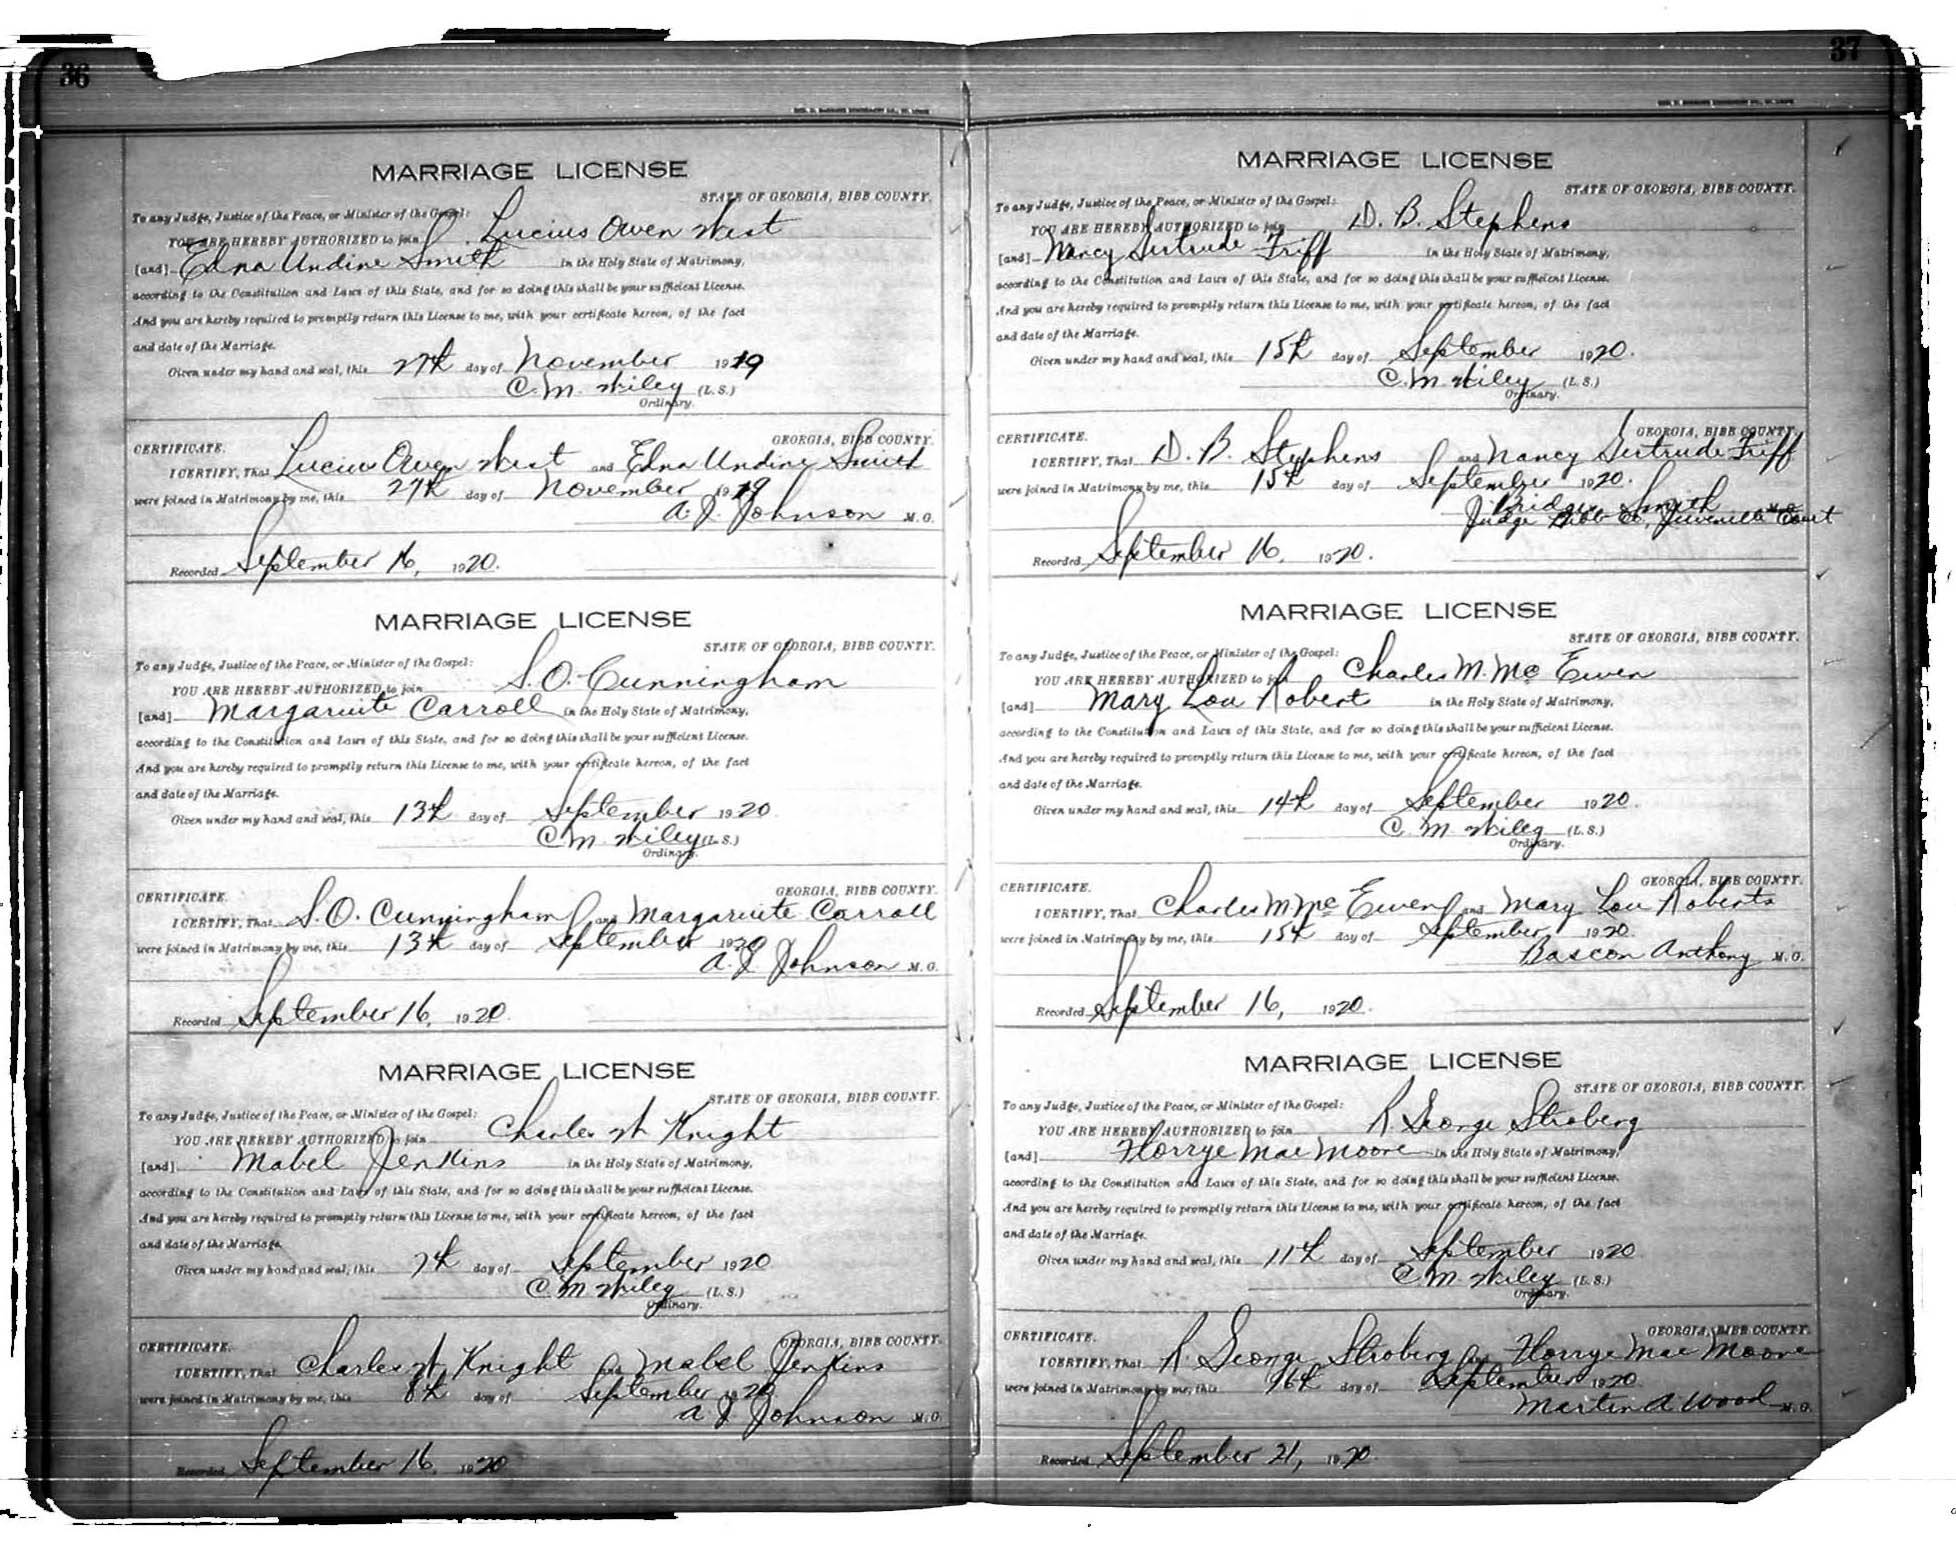 36
MARRIAGE LICENSE
STATE OF GEORGIA, BIBB COUNTY.
To any Judge, Justice of the Peace, or Minister of the Gospel:
YOU ARE HEREBY AUTHORIZED to join Lucius Owen West
[and] Edna Undine Smith in the Holy State of Matrimony,
according to the Constitution and Laws of this State, and for so doing this shall be your sufficient License.
And you are hereby required to promptly return this License to me, with your certificate hereon, of the fact
and date of the Marriage.
Given under my hand and seal, this 27th day of November 1919
C. M. Wiley (L. S.)
Ordinary.
CERTIFICATE. GEORGIA, BIBB COUNTY.
I CERTIFY, That Lucius Owen West and Edna Undine Smith
were joined in Matrimony by me, this 27th day of November 1919
A. J. Johnson M. G.
Recorded September 16, 1920.
MARRIAGE LICENSE
STATE OF GEORGIA, BIBB COUNTY.
To any Judge, Justice of the Peace, or Minister of the Gospel:
YOU ARE HEREBY AUTHORIZED to join S. O. Cunningham
[and] Margaruite Carroll in the Holy State of Matrimony,
according to the Constitution and Laws of this State, and for so doing this shall be your sufficient License.
And you are hereby required to promptly return this License to me, with your certificate hereon, of the fact
and date of the Marriage.
Given under my hand and seal, this 13th day of September 1920
C. M. Wiley (L. S.)
Ordinary.
CERTIFICATE. GEORGIA, BIBB COUNTY.
I CERTIFY, That S. O. Cunningham and Margaruite Carroll
were joined in Matrimony by me, this 13th day of September 1920
A. J. Johnson M. G.
Recorded September 16, 1920.
MARRIAGE LICENSE
STATE OF GEORGIA, BIBB COUNTY.
To any Judge, Justice of the Peace, or Minister of the Gospel:
YOU ARE HEREBY AUTHORIZED to join Charles W Knight
[and] Mabel Jenkins in the Holy State of Matrimony,
according to the Constitution and Laws of this State, and for so doing this shall be your sufficient License.
And you are hereby required to promptly return this License to me, with your certificate hereon, of the fact
and date of the Marriage.
Given under my hand and seal, this 7th day of September 1920
C. M Wiley (L. S.)
Ordinary.
CERTIFICATE. GEORGIA, BIBB COUNTY.
I CERTIFY, That Charles W. Knight and Mabel Jenkins
were joined in Matrimony by me, this 8th day of September 1920
A J Johnson M. G.
Recorded September 16, 1920
37
MARRIAGE LICENSE
STATE OF GEORGIA, BIBB COUNTY.
To any Judge, Justice of the Peace, or Minister of the Gospel:
YOU ARE HEREBY AUTHORIZED to join D. B. Stephens
[and] Nancy Gertrude Friff in the Holy State of Matrimony,
according to the Constitution and Laws of this State, and for so doing this shall be your sufficient License.
And you are hereby required to promptly return this License to me, with your certificate hereon, of the fact
and date of the Marriage.
Given under my hand and seal, this 15th day of September 1920.
C. M. Wiley (L. S.)
Ordinary.
CERTIFICATE. GEORGIA, BIBB COUNTY.
I CERTIFY, That D. B. Stephens and Nancy Gertrude Friff
were joined in Matrimony by me, this 15th day of September 1920.
Bridges Smith
Judge Bibb Co, Juvenille Court
Recorded September 16, 1920.
MARRIAGE LICENSE
STATE OF GEORGIA, BIBB COUNTY.
To any Judge, Justice of the Peace, or Minister of the Gospel:
YOU ARE HEREBY AUTHORIZED to join Charles M. Mc Ewen
[and] Mary Lou Robert in the Holy State of Matrimony,
according to the Constitution and Laws of this State, and for so doing this shall be your sufficient License.
And you are hereby required to promptly return this License to me, with your certificate hereon, of the fact
and date of the Marriage.
Given under my hand and seal, this 14th day of September 1920.
C. M. Wiley (L. S.)
Ordinary.
CERTIFICATE. GEORGIA, BIBB COUNTY.
I CERTIFY, That Charles M Mc Ewen and Mary Lou Roberts
were joined in Matrimony by me, this 15th day of September 1920.
Bascon Anthony M. G.
Recorded September 16, 1920.
MARRIAGE LICENSE
STATE OF GEORGIA, BIBB COUNTY.
To any Judge, Justice of the Peace, or Minister of the Gospel:
YOU ARE HEREBY AUTHORIZED to join R George Stroberg
[and] Florrye Mae Moore in the Holy State of Matrimony,
according to the Constitution and Laws of this State, and for so doing this shall be your sufficient License.
And you are hereby required to promptly return this License to me, with your certificate hereon, of the fact
and date of the Marriage.
Given under my hand and seal, this 11th day of September 1920
C. M. Wiley (L. S.)
Ordinary.
CERTIFICATE. GEORGIA, BIBB COUNTY.
I CERTIFY, That R. George Stroberg and Florrye Mae Moore
were joined in Matrimony by me, this 16th day of September 1920
Martin A Wood M. G.
Recorded September 21, 1920.